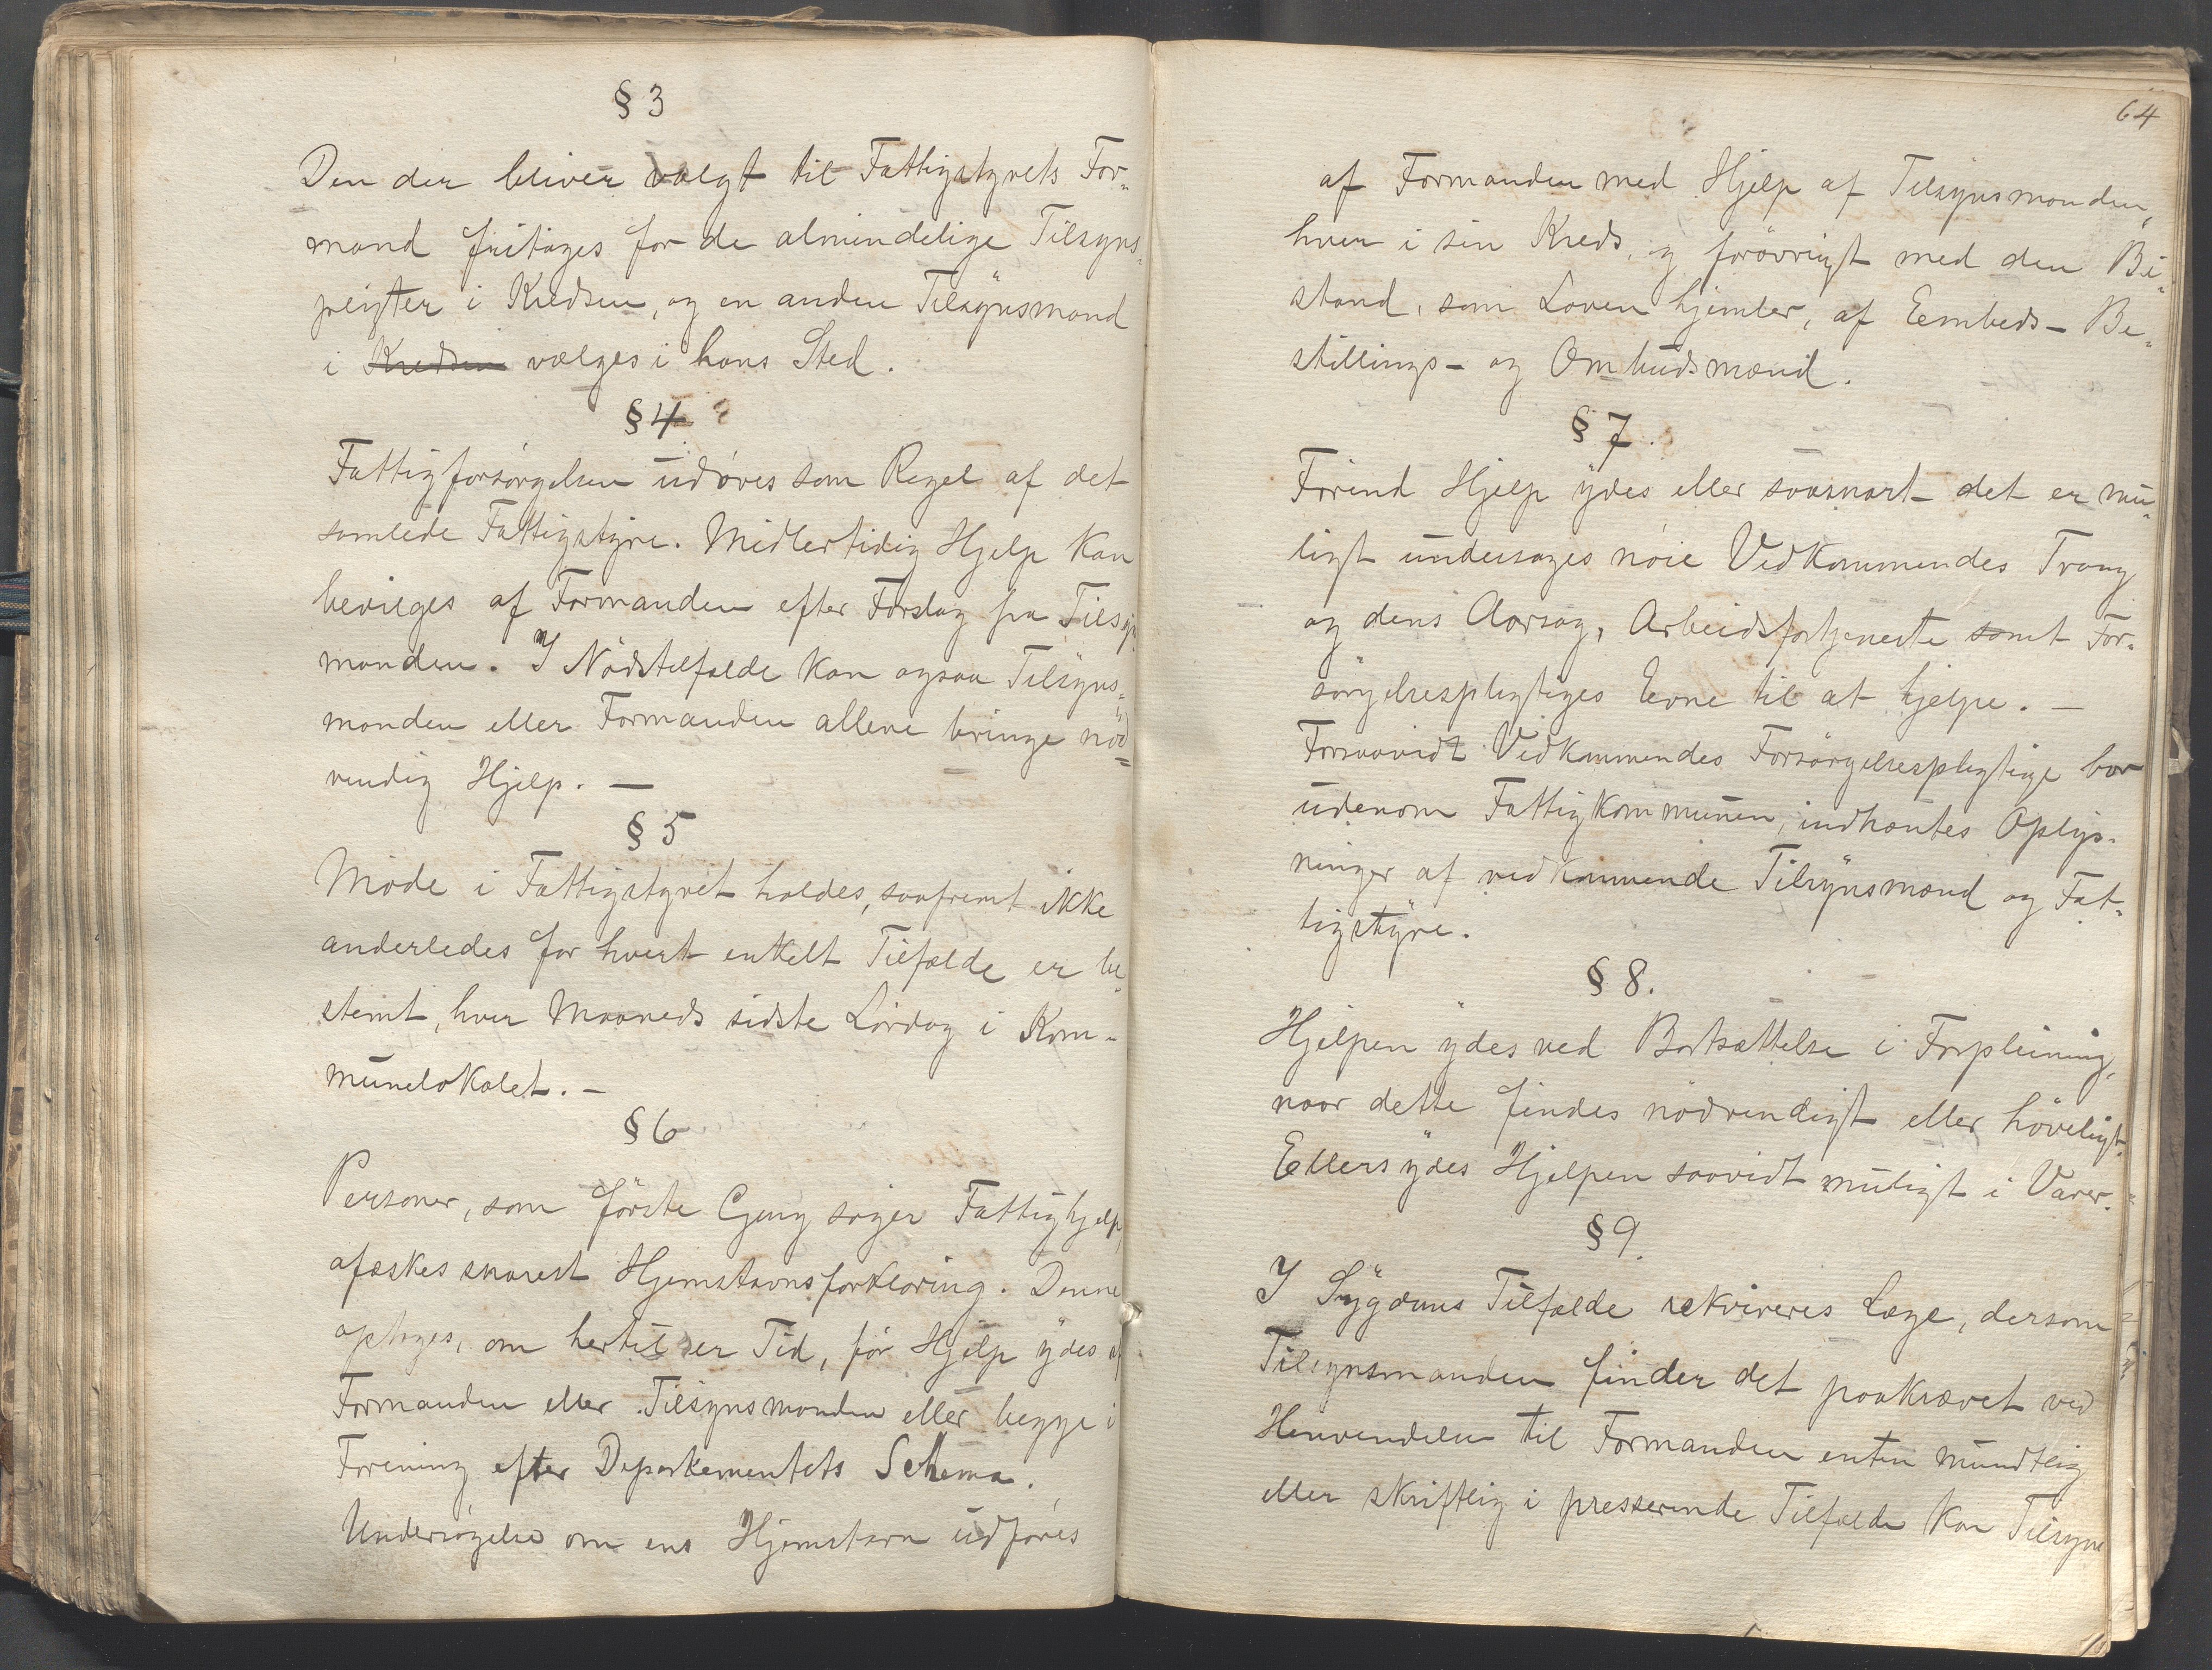 § 3
Den der bliver valgt til Fattigstyrets For-
mand fritages for de almindelige Tilsyns-
pligter i Kredsen, og en anden Tilsynsmand
i Kredsen vælges i hans Sted.
§ 4
Fattigforsørgelsen udøves som Regel af det
samlede Fattigstyre. Midlertidig Hjelp kan
bevilges af Formanden efter Forslag fra Tilsyns
manden. I Nødstilfælde kan ogsaa Tilsyns-
manden eller Formanden allene bringe nød-
vendig Hjelp. —
§ 5
Møde i Fattigstyret holdes, saafremt ikke
anderledes for hvert enkelt Tilfælde er be-
stemt, hver Maaneds sidste Lørdag i Kom-
munelokalet. —
§ 6
Personer, som første Gang søger Fattighjelp,
afæskes snarest Hjemstavnsforklaring. Denne
optages, om hertil er Tid, før Hjelp ydes af
Formanden eller Tilsynsmanden eller begge i
Forening efter Departementets Schema.
Undersøgelse om ens Hjemstavn udføres
64
af Formanden med Hjelp af Tilsynsmanden,
hver i sin Kreds, og forøvrigt med den Bi-
stand, som Loven hjemler, af Eembeds- Be-
stillings- og Ombudsmænd.
§ 7.
Førend Hjelp ydes eller saasnart det er mu-
ligt undersøges nøie Vedkommendes Trang
og dens Aarsag, Arbeidsfortjeneste samt For-
sørgelsespligtiges Evne til at hjelpe. —
Forsaavidt Vedkommendes Forsørgelsespligtige bor
udenom Fattigkommunen, indhentes Oplys-
ninger af vedkommende Tilsynsmand og Fat-
tigstyre.
§ 8.
Hjelpen ydes ved Bortsættelse i Forpleining,
naar dette findes nødvendigt eller høveligt.
Ellers ydes Hjelpen saavidt muligt i Varer.
§ 9.
I Sygdoms Tilfælde rekvireres Læge, dersom
Tilsynsmanden finder det paakrævet ved
Henvendelse til Formanden enten mundtlig
eller skriftlig i presserende Tilfælde kan Tilsyns